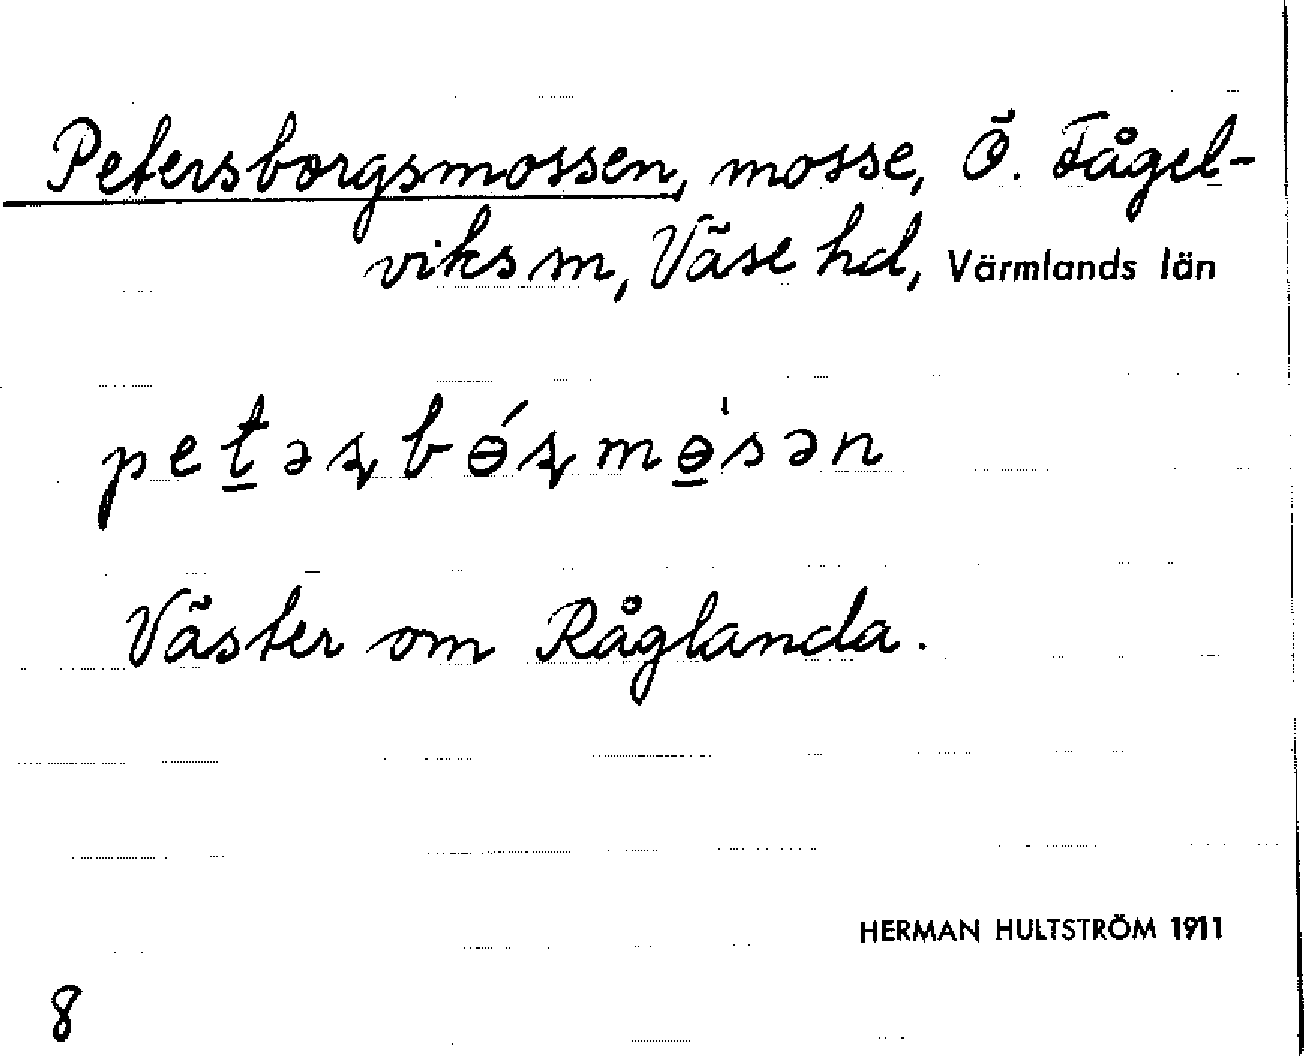 Petersborgsmossen, mosse, Ö. Fågel-
viks sn, Väse hd, Värmlands län
pet̲əʂbɵ́ʂmɵ̲̍sən
Väster om Råglanda.
HERMAN HULTSTRÖM 1911
8